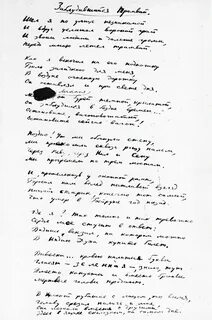 Заблудившийся трамвай.
Шел я по улице незнакомой
И вдруг услышал вороний грай
И звоны лютни и дальние громы,
Передо мною летел трамвай.
Как я вскочил на его подножку
Было загадкою для меня
В воздухе огненную дорожку
Он оставлял и при свете дня.
Мчался он бурей темной, крылатой,
Он заблудился в бездне времен...
Остановите, вагоновожатый,
Остановите сейчас вагон.
Поздно! Уж мы обогнули стену,
Мы проскочили сквозь рощу пальм,
Через Неву, через Нил и Сену
Мы прогремели по трем мостам.
И, промелькнув у оконной рамы,
Бросил нам вслед пытливый взгляд
Нищий старик, конечно тот самый,
Что умер в Бейруте год назад.
Где я? Так томно и так тревожно
Сердце мое стучит в ответ:
Видишь вокзал, на котором можно
В Индию Духа купить билет.
Вывеска... кровью налитые буквы
Гласят: зеленная, знаю, тут
Вместо капусты и вместо брюквы
Мертвые головы продают.
В красной рубашке, с лицом, как вымя,